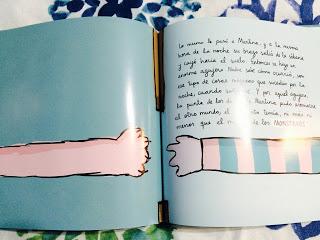 Lo mismo le pasó a Martina, y a la misma
hora de la noche su brazo salió de la sábana
y cayó hacia el suelo. Entonces se hizo un
enorme agujero. Nadie sabe cómo ocurrió, son
ese tipo de cosas que suceden por la
noche, cuando Y por aquel agujero
la punta de los de Martina pudo atravesar
el otro mundo, el tenía, ni más ni
menos que el de los MONSTRUOS